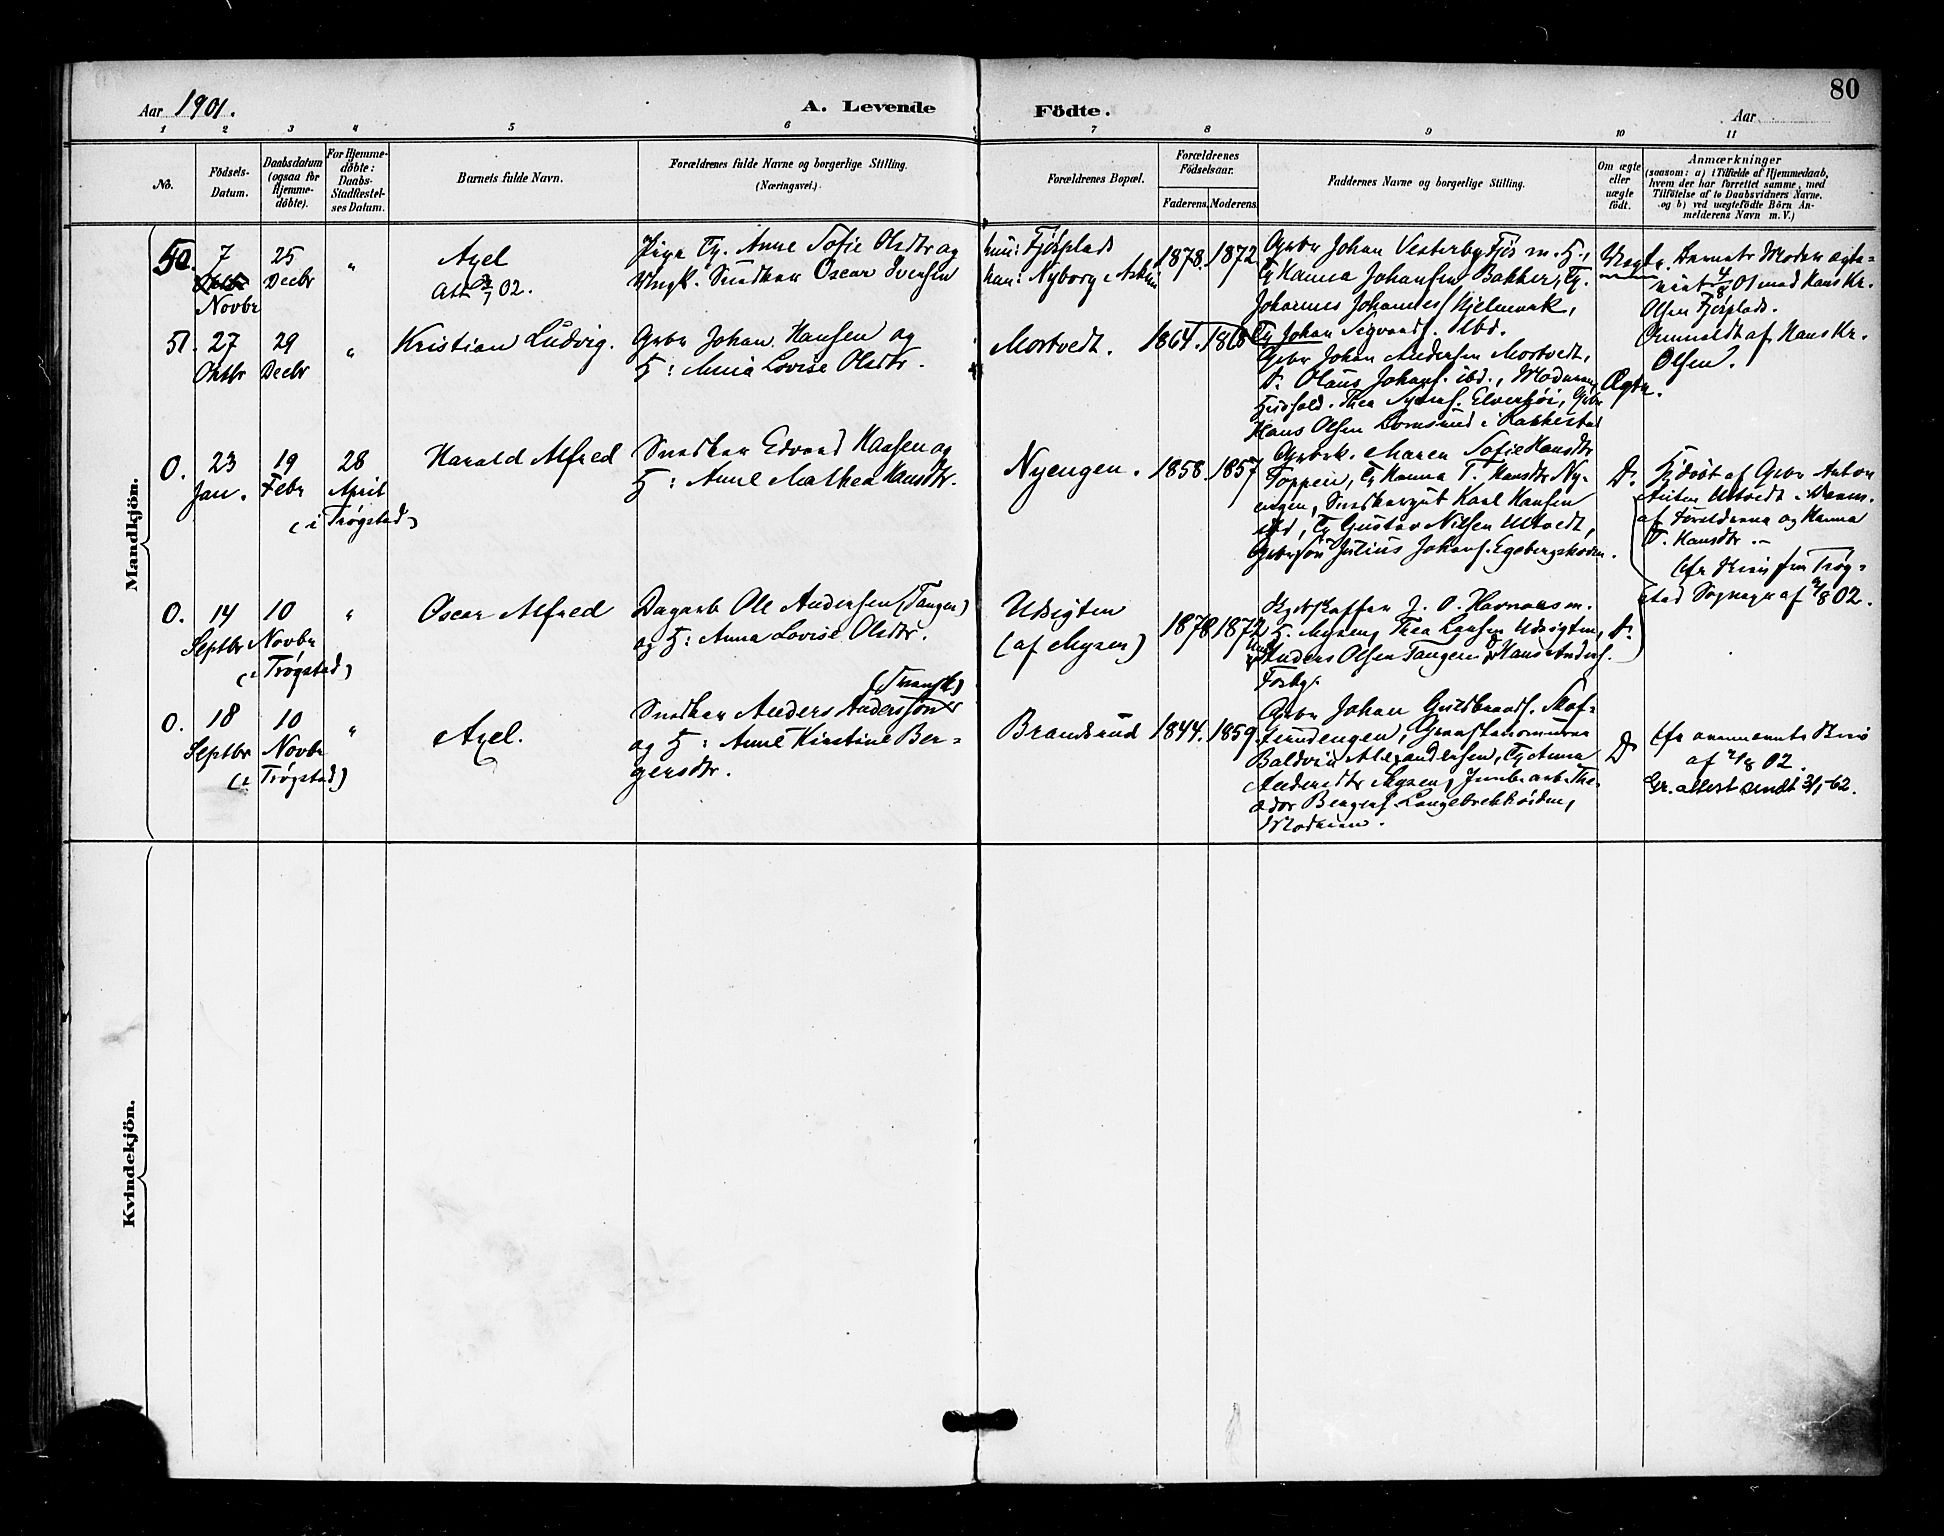 80
Aar 1901.
A. Levende Födte.
Aar
1 2 3 4 5 6 7 8 9 10 11
No.
Födsels-
Datum.
Daabsdatum
(ogsaa for
Hjemme-
döbte).
For Hjemme-
döbte:
Daabs-
Stadfæstel-
ses Datum.
Barnets fulde Navn.
Forældrenes fulde Navne og borgerlige Stilling.
(Næringsvei.)
Forældrenes Bopæl.
Forældrenes
Födselsaar.
Faderens. Moderens.
Faddernes Navne og borgerlige Stilling.
Om ægte
eller
uægte
födt.
Anmærkninger
(saasom: a) i Tilfælde af Hjemmedaab,
hvem der har forrettet samme, med
Tilföielse af to Daabsvidners Navne.
og b) ved uægtefödte Börn An-
melderens Navn m. V.)
Mandkjön.
50.
7
Novbr
25
Decbr
"
Axel
Att 02.
Pige Tj. Anne Sofie Olsdtr og
Ungk. Snedker Oscar Iversen
hun: Fjösplads
han: Nyborg i Askim
1878. 1872
Grbr Johan Vesterby Fjös m. H.,
Tj Hanna Johansen Bakker, Tj.
Johannes Johannes Hjelmark,
Tj Johan Sigvards. ibd.
Uægte.
Barnets Moder ægte-
viet 4/8 01 med Hans Kr.
Olsen Fjösplads.
Anmeldt af Hans Kr.
Olsen.
51.
27
Oktbr
29
Decbr
"
Kristian Ludvig.
Grbr Johan Hansen og
H: Anna Lovise Olsdtr.
Mortvedt.
1864. 1868
Grbr Johan Andersen Mortvedt,
D. Olaus Johans. ibd., Moderen,
Thea Elverhöi, Grbr
Hans Olsen i Rakkestad
Ægte.
0.
23
Jan.
19
Febr
28
April
(i Trøgstad)
Harald Alfred
Snedker Edvard Hansen og
H: Anne Mathea Hansdtr.
Nyengen.
1858. 1857
Maren Sofie Hansdtr
Toppen, Tj Hanna T. Hansdtr Ny-
engen, Snedkergut Karl Hansen
ibd, Tj Gustav Nilsen Utvedt,
Grbrsön Julius Johans. Egebergskoden.
Do
Hjdöbt af Grbr Anton
Utvedt i Overv.
af Forældrene og Hanna
T. Hansdtr.
Cfr Skriv fra Trøg-
stad Sogneprs af 2/8 02.
0.
14
Septbr
10
Novbr
(i Trøgstad)
"
Oscar Alfred
Dagarb Ole Andersen (Tangen)
og H: Anna Lovise Olsdtr.
Udsigten
(af Mysen)
1878 1872
J. O. Havnaas m.
H. Mysen, Thea Larsen Udsigten,
Anders Olsen Tangen & Hans Anders.
Fosby.
Do
0.
18
Septbr
10
Novbr
(i Trøgstad)
"
Axel.
(Svensk)
Snedker Anders Andersson
og H: Anne Kirstine Ber-
gersdtr.
Brandsrud
1844. 1859.
Grbr Johan Guldbrands.
Baldvin Alexandersen, Tj Anna
Andersdtr Mysen, Jernbarb The-
odor Bergers Langebrekkóiden,
Moderen.
Do
Cfr ovennævnte Skriv
af 2/8 02.
Gr. attest sendt 3/1-62.
Kvindekjön.